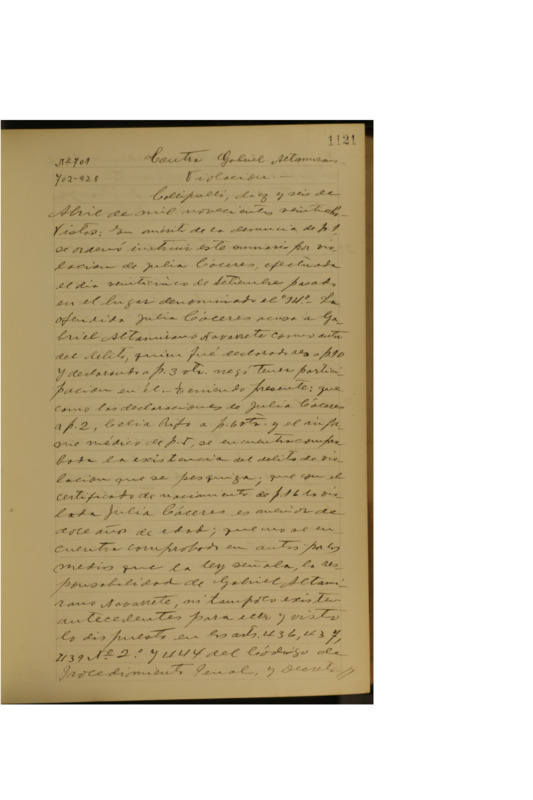 1121
Nº 701 Contra Gabriel Altamirano
702-928 Violacion.-
Collipulli, diez y seis de
Abril de mil novecientos veintiocho-
Vistos: En mérito de la denuncia de f. 1
se ordenó instruir este sumario por vio
lacion de Julia Cáceres, efectuada
el dia veinticinco de Setiembre pasado
en el lugar denominado el "14". La
ofendida Julia Cáceres acusa a Ga
briel Altamirano Navarrete como autor
del delito, quien fué declarado reo a f. 10
y declarando a f. 3 vta. negó tener partici
pacion en él.- Teniendo presente: que
como las declaraciones de Julia Cáceres
a f. 2, Celia Rifo a f. 6 vta. y el infor
me médico de f. 5, se encuentra compro
bada la existencia del delito de vio
lacion que se pesquiza; que con el
certificado de nacimiento de f. 16 la vio
lada Julia Cáceres es menor de
doce años de edad; que no se en
cuentra comprobado en autos por los
medios que la ley señala, la res
ponsabilidad de Gabriel Altami
rano Navarrete, ni tampoco existen
antecedentes para ello y visto
lo dispuesto en los arts. 436, 437,
439 Nº 2º y 444 del Código de
Procedimiento Penal, y Decreto